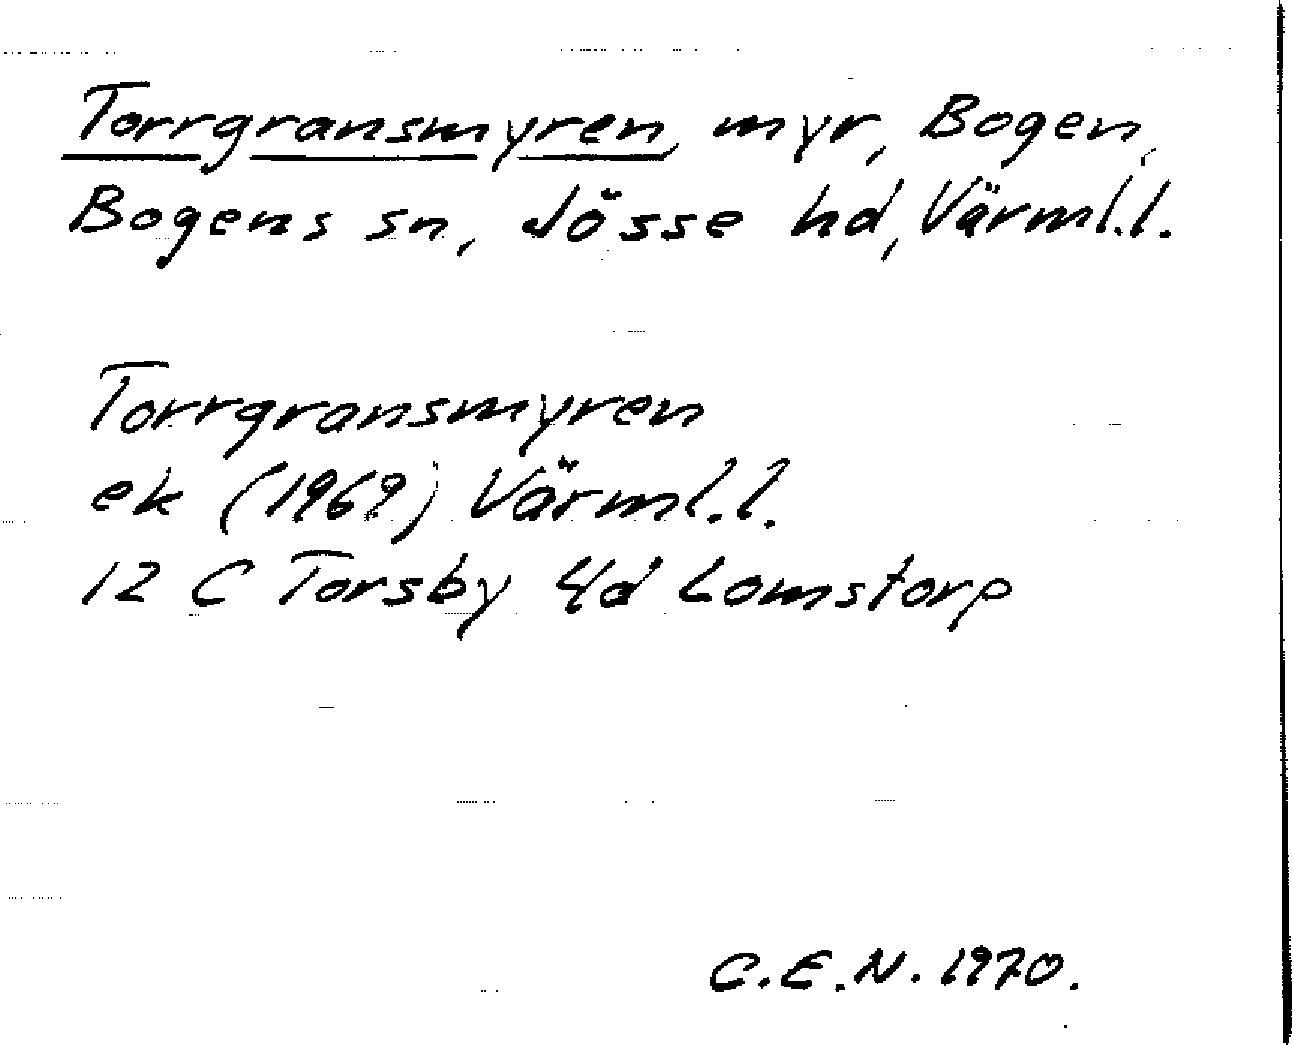 Torrgransmyren, myr, Bogen,
Bogens sn, Jösse hd, Värml.l.
Torrgransmyren
ek (1969) Värml.l.
12 C Torsby 4d Lomstorp
C.E.N. 1970.